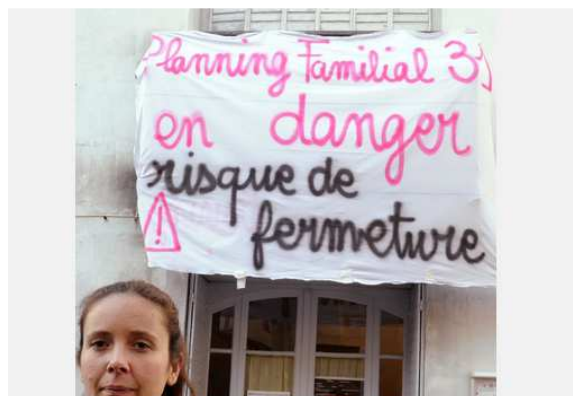 Planning Familial
en danger
risque de
fermeture